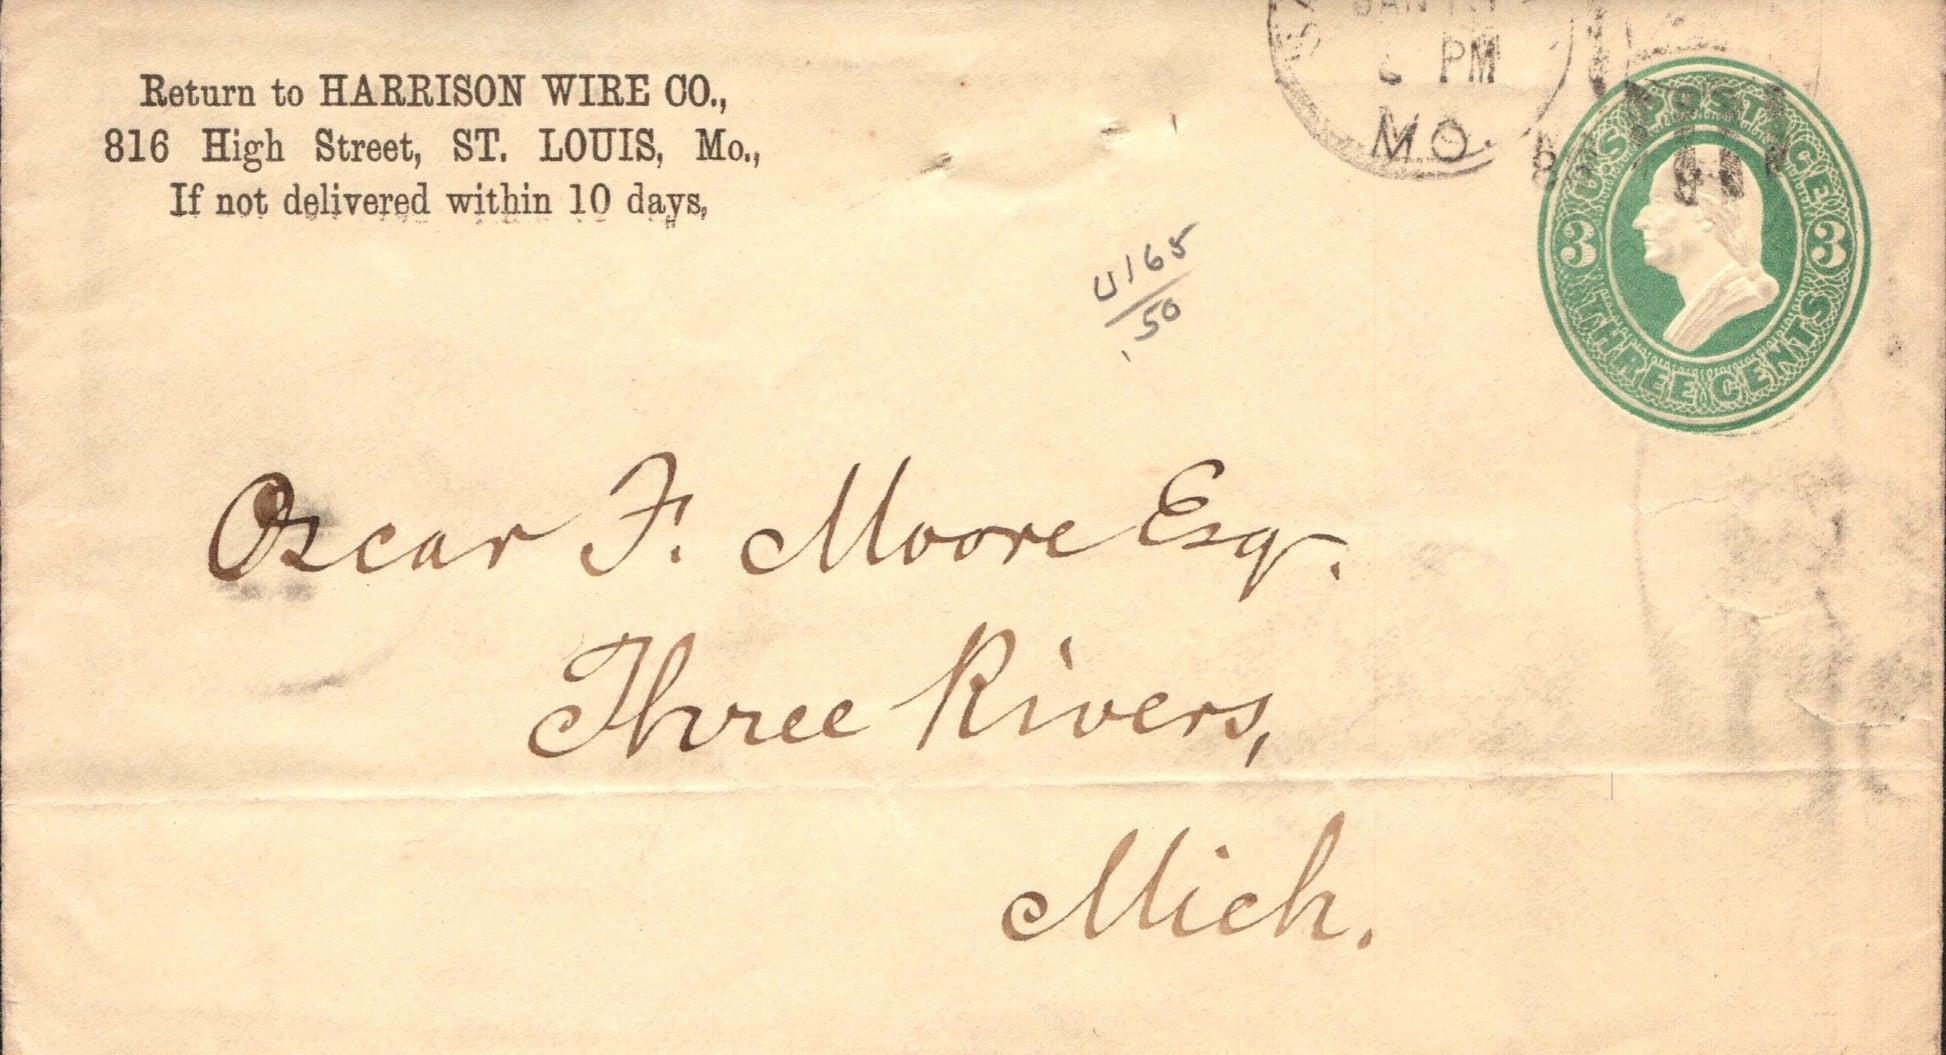 Return to HARRISON WIRE CO.,
816 High Street, ST. LOUIS, Mo.,
If not delivered within 10 days,
JAN
PM
MO.
U.S. POSTAGE
3 3
THREE CENTS
U165
.50
Oscar F. Moore Esqr.
Three Rivers,
Mich.